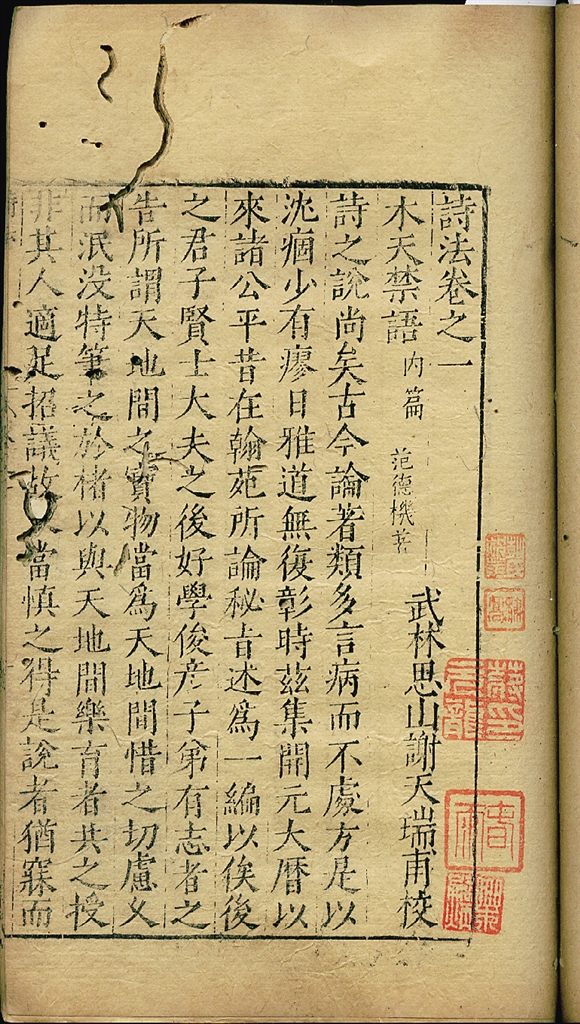 詩法卷之一
武林思山謝天瑞甫校
木天禁語 内篇 范德機著
詩之說尚矣古今論著類多言病而不處方是以
沈痼少有瘳日雅道無復彰時茲集開元大暦以
來諸公平昔在翰苑所論秘旨述爲一編以俟後
之君子賢士大夫之後好學俊彦子弟有志者之
告所謂天地間之寶物當爲天地間惜之切慮久
而泯没特筆之於楮以與天地間樂育者共之授
非其人適足招議故又當慎之得是說者猶寐而